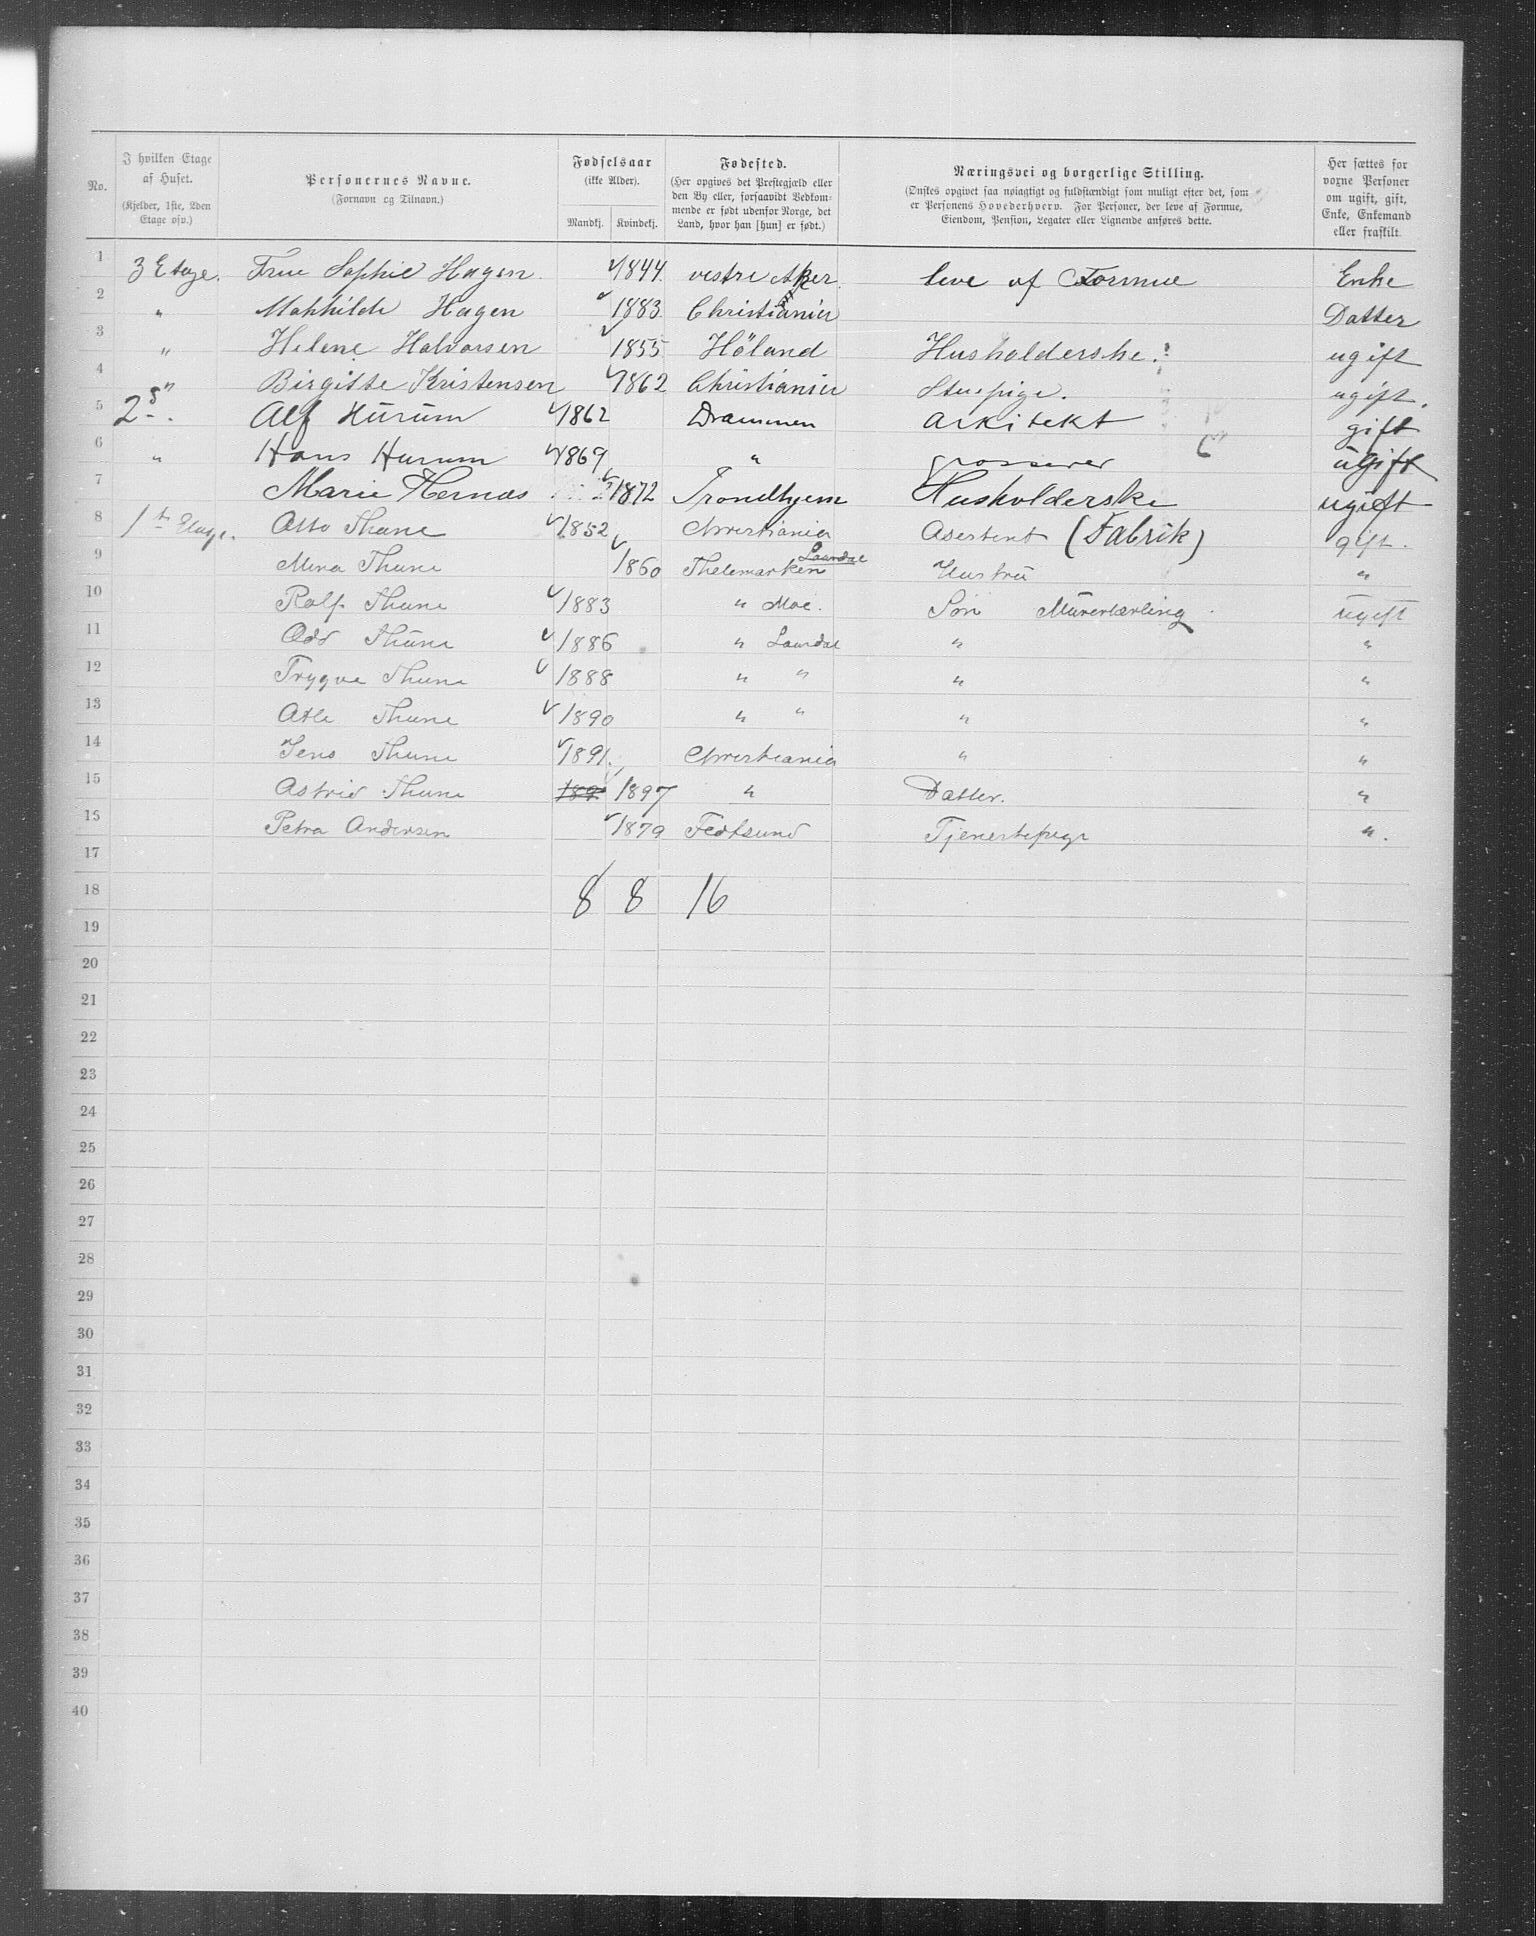 No. I hvilken Etage af Huset. (Kjelder, 1ste, 2den Etage osv.) Personernes Navne. (Fornavn og Tilnavn.) Fødselsaar (ikke Alder). Mandkj. Kvindekj. Fødested. (Her opgives det Prestegjæld eller den By eller, forsaavidt Vedkommende er født udenfor Norge, det Land, hvor han [hun] er født.) Næringsvei og borgerlige Stilling. (Ønskes opgivet saa nøiagtigt og fuldstændigt som muligt efter det, som er Personens Hovederhverv. For Personer, der leve af Formue, Eiendom, Pension, Legater eller Lignende anføres dette. Her sættes for voxne Personer om ugift, gift, Enke, Enkemand eller fraskilt.
1 3 Etage. Frue Sophie Hagen 1844 vestre Aker leve af Formue Enke
2 " Mathilde Hagen 1883 Christiania Datter
3 " Helene Halvorsen 1855 Høland Husholderske. ugift
4 " Birgitte Kristensen 1862 Christiania Stuepige. ugift.
5 2 Alf Hurum 1862 Drammen Arkitekt gift
6 " Hans Hurum 1869 " grosserer ugift
7 Marie Hernæs 1872 Trondhjem Husholderske ugift
8 1ste Etage. Otto Thune 1852 Christiania Asestent (Fabrik) gift.
9 Mina Thune 1860 Thelemarken Laurdal Hustru "
10 Rolf Thune 1883 " Moe. Søn Murerlærling ugift
11 Odd Thune 1886 " Laurdal " "
12 Trygve Thune 1888 " " " "
13 Atle Thune 1890 " " " "
14 Jens Thune 1891 Christiania " "
15 Astrid Thune 189 1897 " Datter. "
15 Petra Andersen 1879 Fedtsund Tjenestepige ".
17
18 8 8 16
19
20
21
22
23
24
25
26
27
28
29
30
31
32
33
34
35
36
37
38
39
40